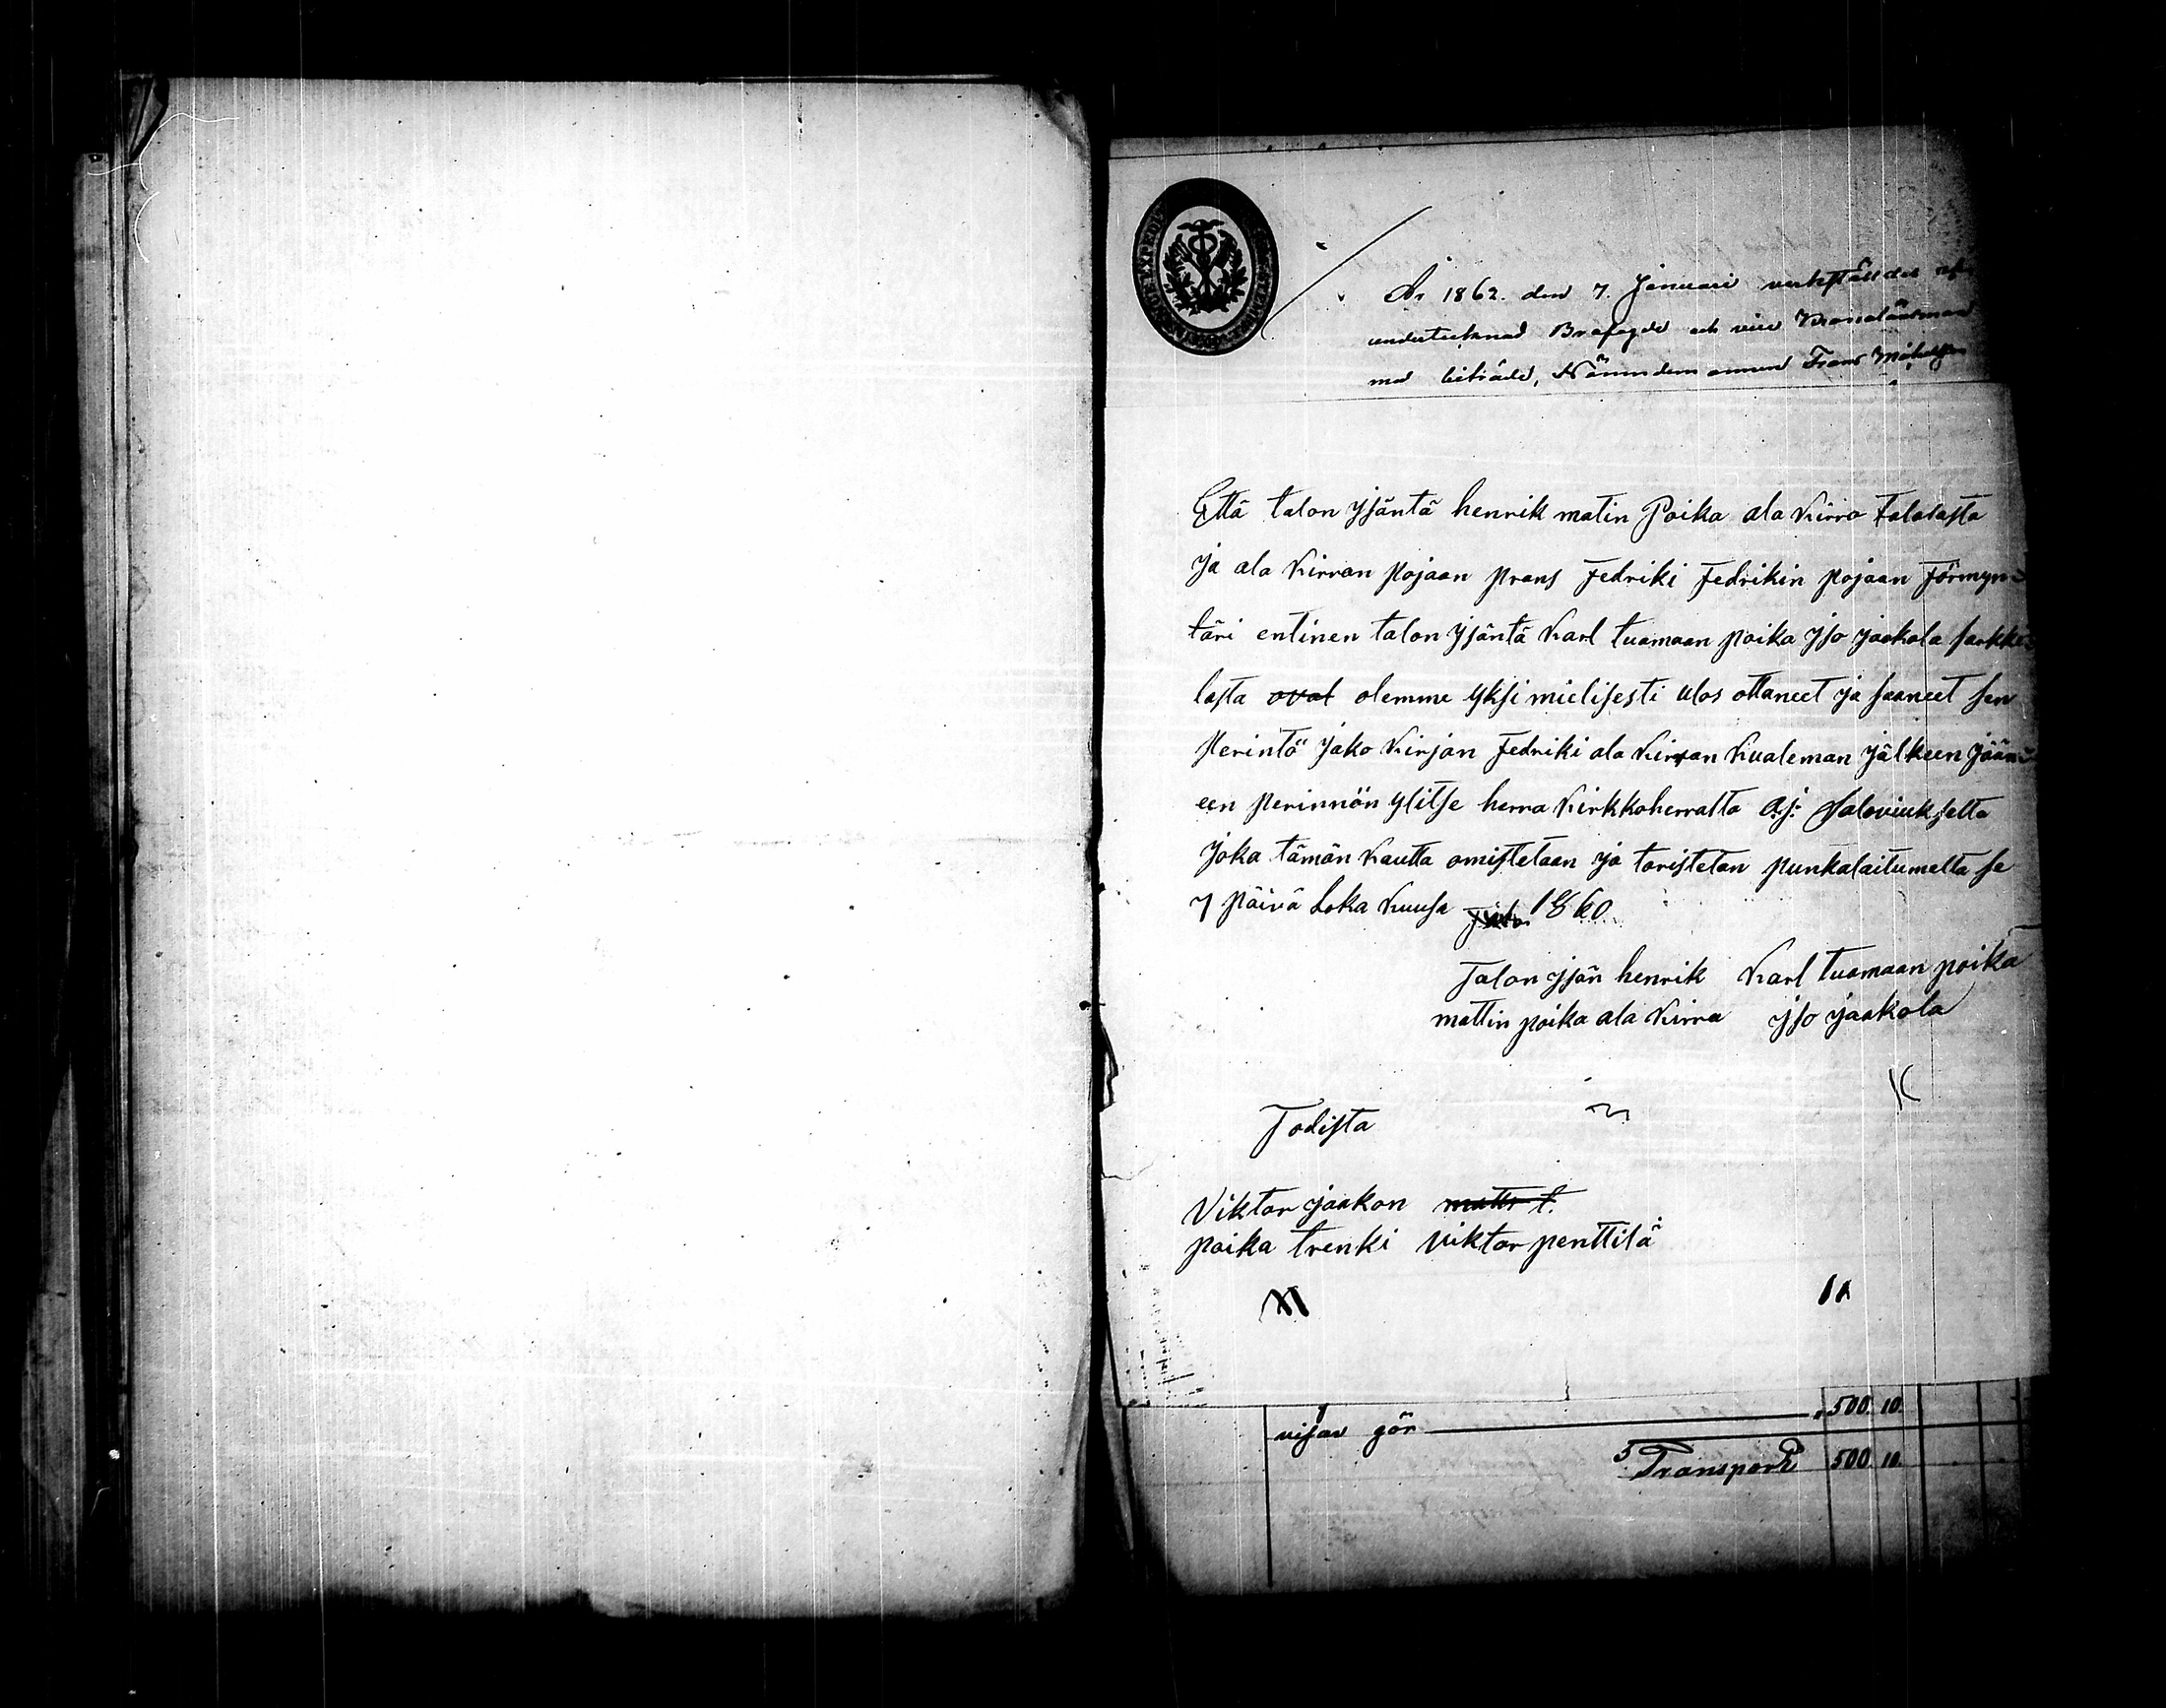 År 1862. den 7. Januari verkställdes af
undertecknad Brofogde och vice Kronolänsman
med biträde, Nämndemannen Frans Michelsson
Että talon Yjäntä henrik matin Poika ala Kirra talolasta
Ja ala Kirran pojaan prans Fedriki Fedrikin pojaan Förmyn-
täri entinen talon yjäntä Karl tuamaan poika yso Jaakola sarkki-
lasta ovat olemme yksi mielisesti ulos ottaneet ja saaneet sen
Perintö Jako Kirjan Fedriki ala Kirran Kualeman jälkeen jään-
een perinnön ylitse herra Kirkkoherralta A.J: Saloviukselta
Joka tämän Kautta omistetaan ja toristetan punkalaitumelta se
7 päivä Loka Kuusa 1860
Talon yjän henrik Karl tuamaan poika
mattin poika ala Kirra yso jaakola
Todista
Viktor jaakon matts t.
poika trenki Viktor penttilä
visar gör 500. 10.
5 Transport 500. 10.